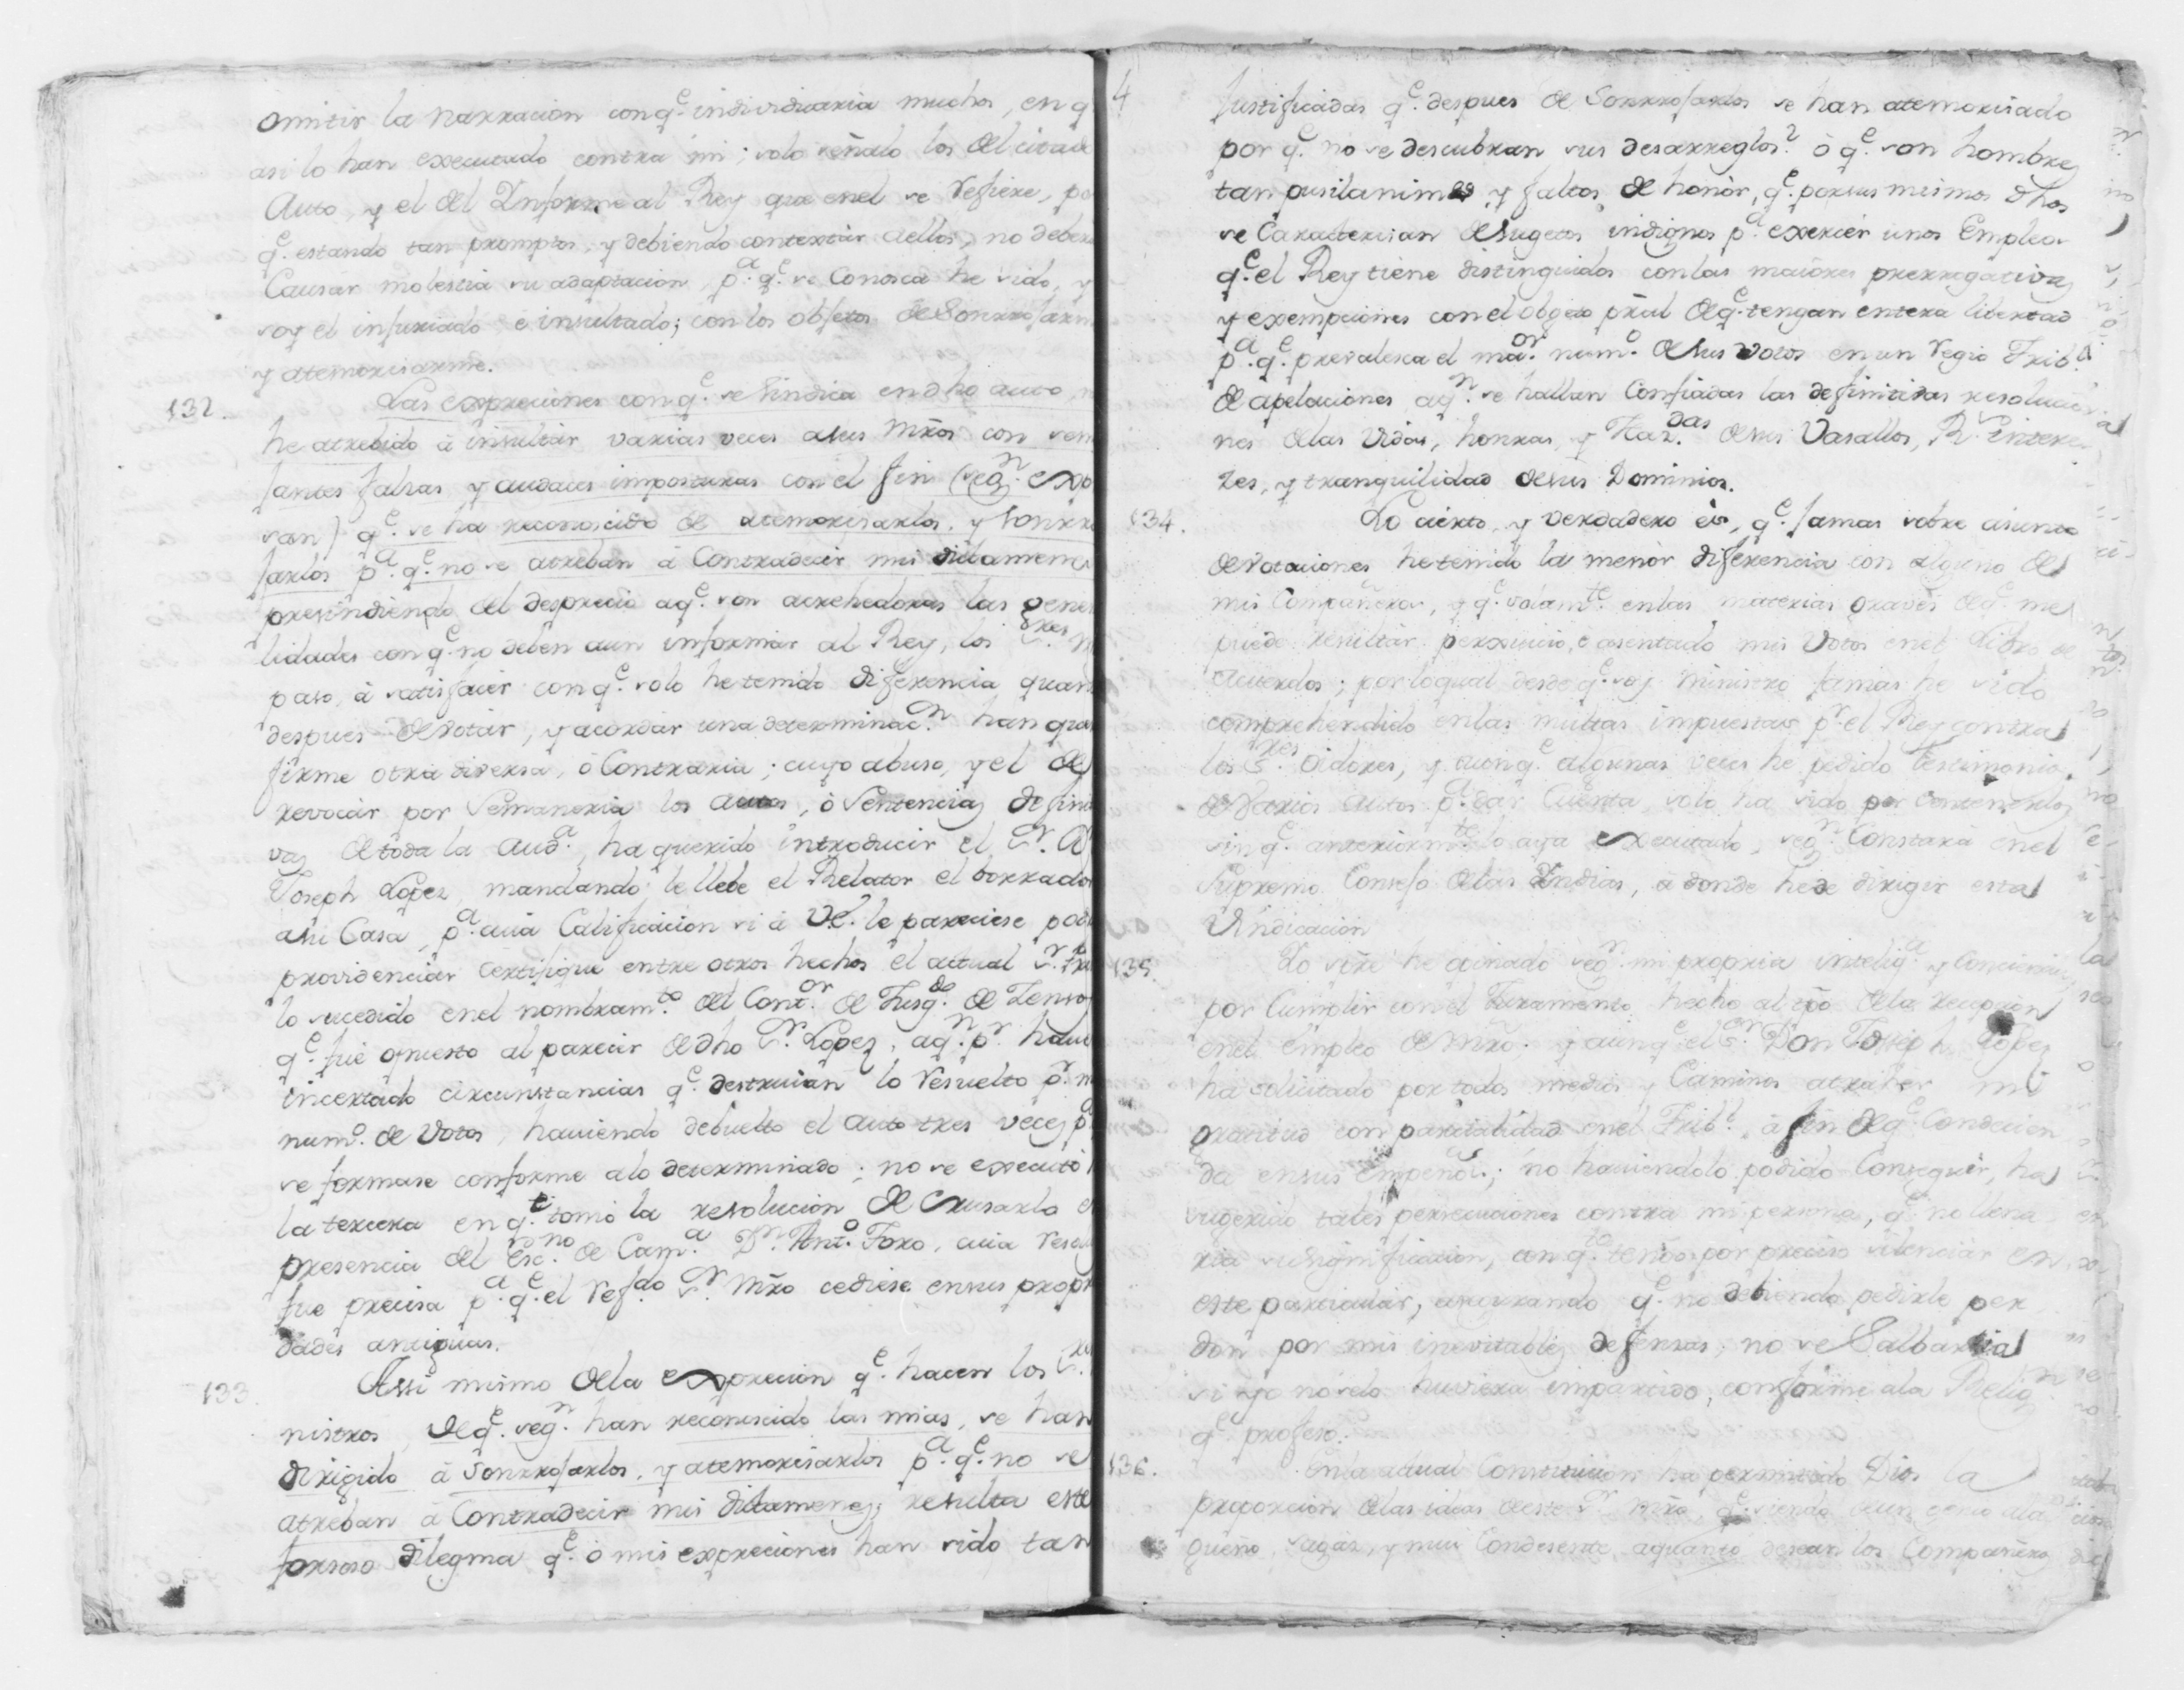 omitir la narracion con q.e individuaria muchos, en q
asi lo han executado contra mi; solo señalo los del citad
Auto, y el del Informe al Rey que en el se refiere, po
q.e estando tan promptos, y debiendo contextar a ellos, no deber
Causar molestia su adaptacion, p.a q.e se Conosca he sido, y
soy el injuriado e insultado; con los objetos de Sonrrojarm
y atemorisarme.
132. Las expreciones con q.e se sindica en dho auto,
he atrebido â insultár varias veces a sus Mrõs con sem
jantes falsas y audaces imposturas con el fin (seg.n exp
san) q.e se ha reconoscido de atemorisarlos, y sonrro
jarlos p.a q.e no se atreban â Contradecir mis dictamene
presindiendo del desprecio a q.e son acrehedoras las gene
lidades con q.e no deben aun informár al Rey, los S.res
paso, â satisfacér con q.e solo he tenido diferencia quan
despues de votár, y acordár una determinac.n han que
firme otra diversa, ô Contraria; cuyo abuso, y el de
revocár por Semaneria los autos, ô Sentencias defini
vas de toda la Aud.a ha querido introducir el S.r D
Joseph Lopez, mandando le llebe el Relator el borrador
a su Casa, p.a cuia Calificacion si â VE. le pareciese pod
providenciár certifique entre otros hechos el actual S.r
lo sucedido en el nombram.to del Cont.or de Jusg.do de Zenso
q.e fué opuesto al parecér de dho S.r Lopez, a q.n p.r haver
incertado circunstancias q.e destruian lo resuelto p.r m
num.o de Votos, haviendo debuelto el auto tres veces p
se formase conforme a lo determinado; no se executó
la tercera en q.e tomó la resolucion de escusarlo
presencia del Esc.no de Cam.a D.n Ant.o Foxo, cuia resol
fue precisa p.a q.e el ref.do S.r Mrõ cediese en sus propr
dades antiguas.
133. Assi mismo de la exprecion q.e hacen los S.
nistros de q.e seg.n han reconoscido las mias, se han
dirigido â Sonrrojarlos, y atemorisarlos p.a q.e no se
atreban â Contradecir mis dictamenes, resulta este
forsoso dilegma q.e ô mis expreciones han sido tan
4
Justificadas q.e despues de Sonrrojarlos se han atemorisado
por q.e no se descubran sus desarreglos? ô q.e son hombres
tan pusilanimes y faltos de honór, q.e por sus mismos dhos
se Caracterisan de sugetos indignos p.a exercér unos Empleos
q.e el Rey tiene distinguidos con las maiores prerrogativas
y exempciones con el objeto prãl de q.e tengan entera libertad
p.a q.e prevalesca el ma.or num.o de sus votos en un regio Trib.l
de apelaciones a q.n se hallan Confiadas las definitivas resolucio
nes de las vidas, honras, y Haz.das de sus Vasallos, R.s intere
zes, y tranquilidad de sus Dominios.
134. Lo cierto, y verdadero és, q.e jamas sobre asunto
de votaciones he tenido la menór diferencia con alguno de
mis Compañeros, y q.e solam.te en las materias graves de q.e me
puede resultár perjuicio, e asentado mis Votos en el Libro de
Acuerdos; por lo qual desde q.e soy Ministro jamas he sido
comprehendido en las multas impuestas p.r el Rey contra
los S.res Oidores, y aunq.e algunas veces he pedido testimonio
de varios autos p.a dar Cuenta, solo ha sido por contenerlos
sin q.e anteriorm.te lo aya executado, seg.n Constara en el
Supremo Consejo de las Indias, â donde he de dirigir esta
Vindicacion
135. Yo siñe he opinado seg.n mi propria intelig.a y Conciencia
por Cumplir con el Juramento hecho al tpõ de la recepcion
en el empleo de Mrõ. y aunq.e el S.r Don Joseph Lopez
ha solicitado por todos medios y Caminos atraher mi
gratitud con parcialidad en el Trib.l â fin de q.e Condecien
da en sus empeños; no haviendolo podido Conseguir, ha
sugerido tales persecuciones contra mi persona, q.e no llena
ria su significacion, con q.e tengo por preciso silenciár en
este particulár, asegurando q.e no debiendo pedirle per
don por mis inevitables defensas, no se Salbaria
si yo no selo huviera impartido, conforme a la Relig.n
q.e profeso.
136. En la actual Constitucion ha permitido Dios la
proporcion de las ideas de este S.r Mrõ, q.e siendo de un genio ala
gueño, sagáz, y mui Condesente, a quanto desean los Compañeros